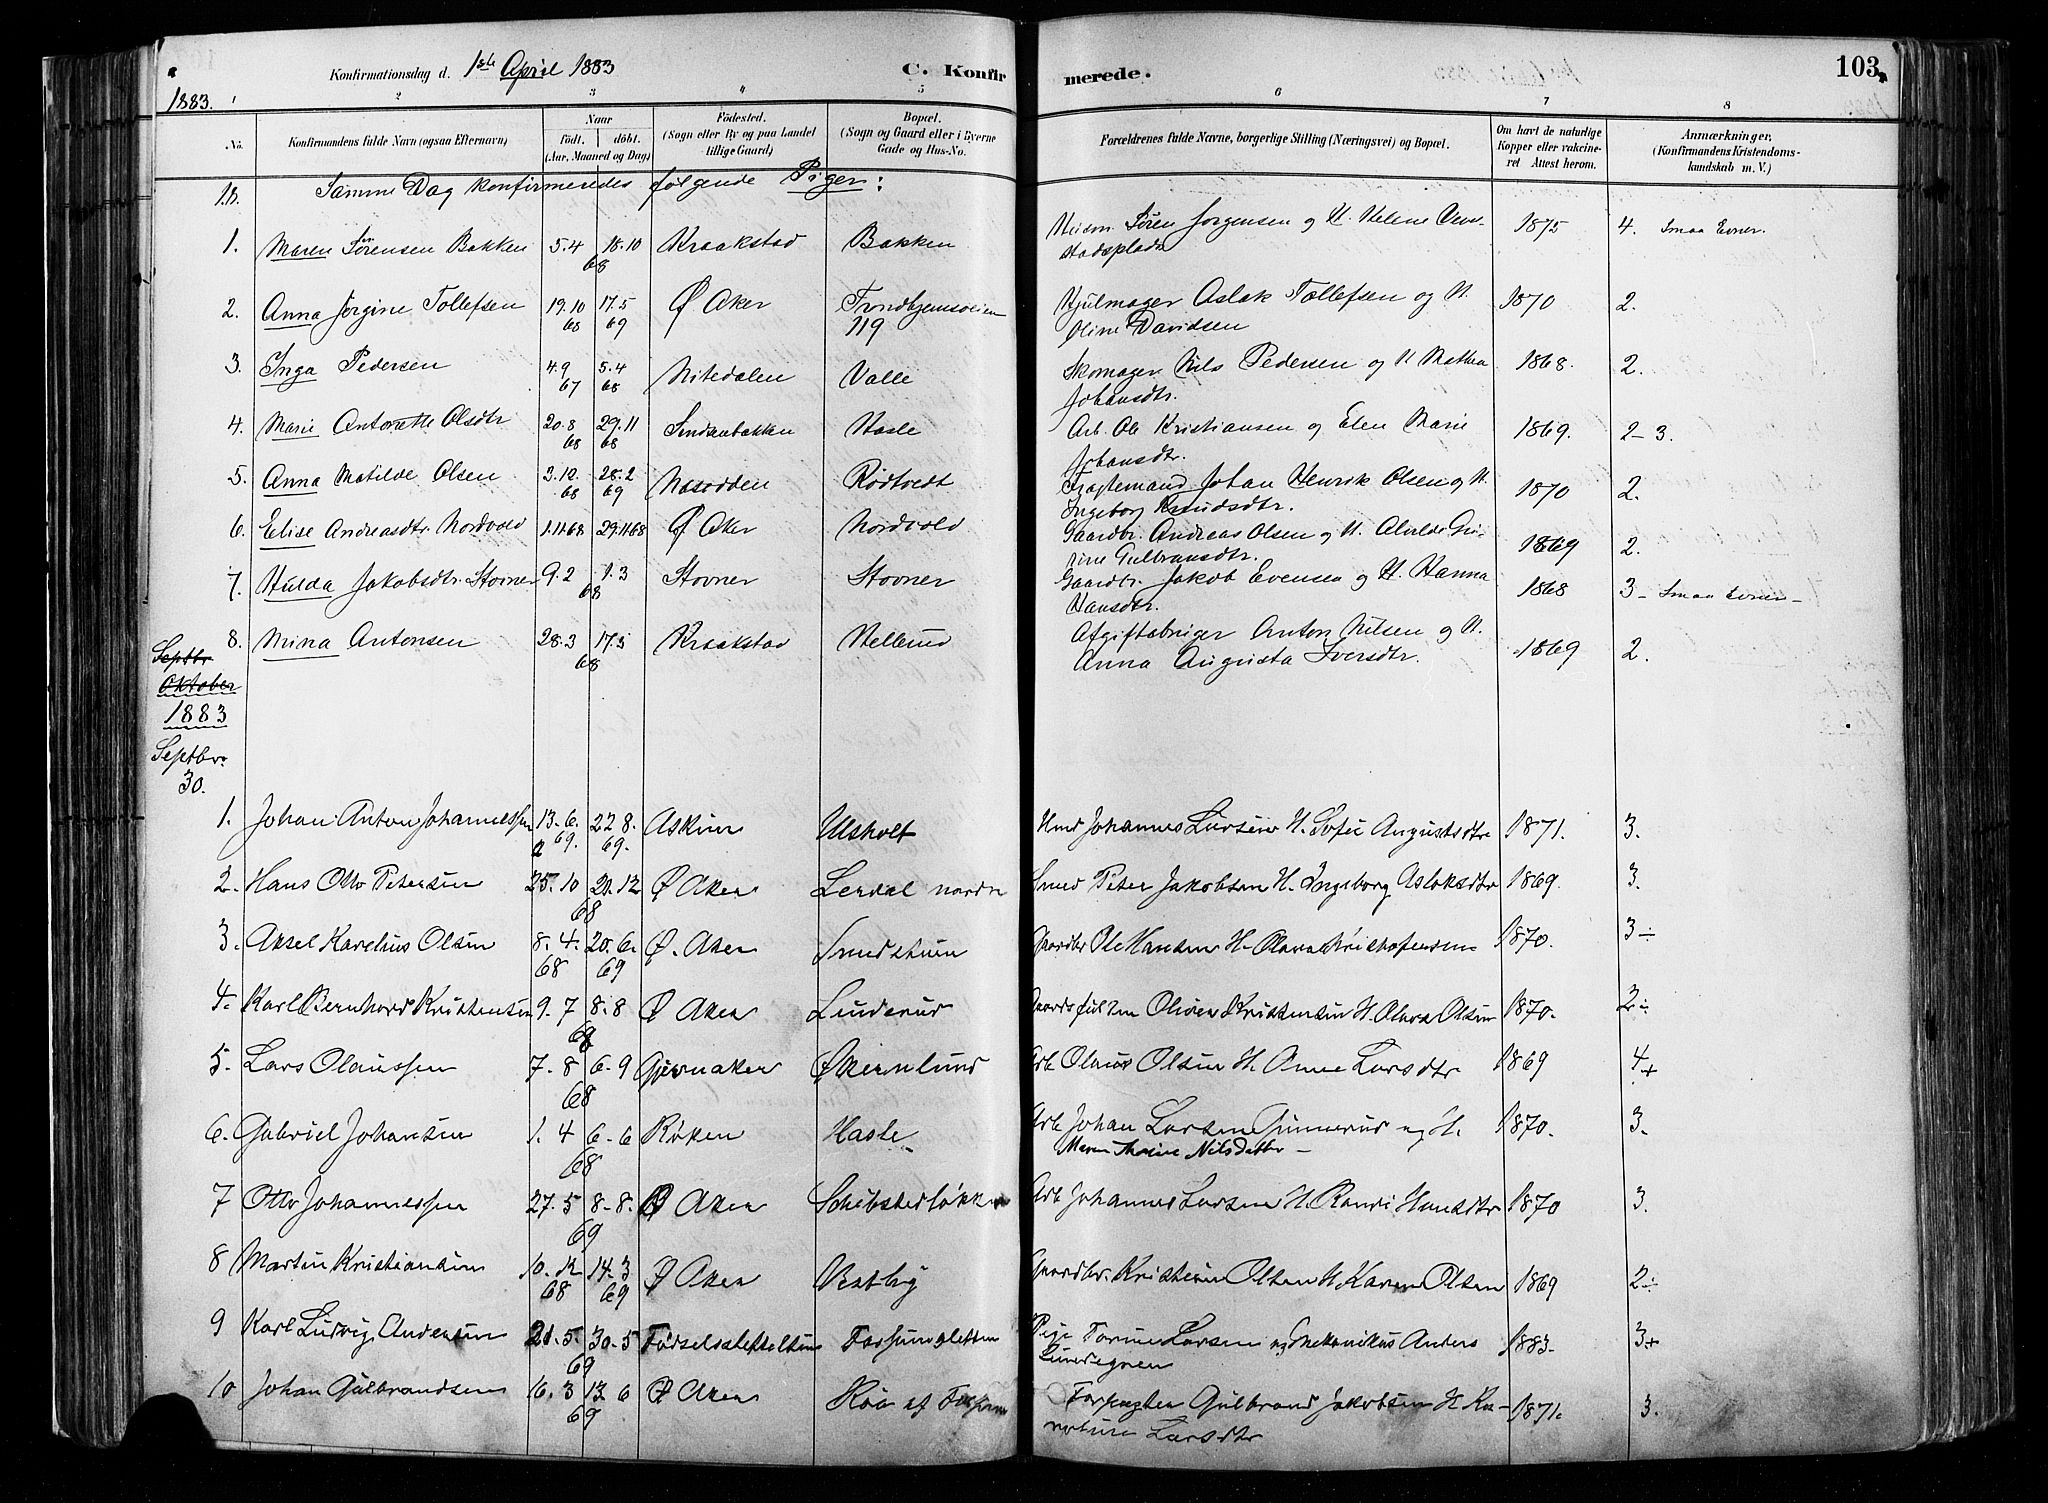 Konfirmationsdag d. 1ste April 1883 C. Konfirmerede. 103
1883.
1 2 3 4 5 6 7 8
No. Konfirmandens fulde Navn (ogsaa Efternavn) Naar født. døbt. (Aar, Maaned og Dag) Fødested. (Sogn eller By og paa Landet tillige Gaard) Bopæl. (Sogn og Gaard eller i Byerne Gade og Hus-No. Forældrenes fulde Navne, borgerlige Stilling (Næringsvei) og Bopæl. Om havt de naturlige Kopper eller vakcineret Attest herom. Anmærkninger, (Konfirmandens Kristendomskundskab m. V.)
Samme Dag konfirmeredes følgende Piger:
1. Maren Sørensen Bakken 5.4 18.10 68 Kraakstad Bakken Søren Jørgensen og H. Helene 1875 4. Smaa Evner.
stadsplads
2. Anna Jørgine Tollefsen 19.10 68 17.5 69 Ø Aker Trondhjemsveien 119 Hjulmager Aslak Tollefsen og H. 1870 2.
Oline Davidsen
3. Inga Pedersen 4.9 67 5.4 68 Nitedalen Valle Skomager Nils Pedersen og H Mathea 1868. 2.
Johansdtr.
4. Marie Antonette Olsdtr 20.8 68 29.11 68 Hasle Arb. Ole Kristiansen og Elen Marie 1869. 2-3.
Johansdtr.
5. Anna Matilde Olsen 3.12. 68 28.2 69 Nesodden Rødtvedt Johan Henrik Olsen og H. 1870 2.
Ingeborg Knudsdtr.
6. Elise Andreasdtr Nordvold 1.11.68 29.11.68 Ø Aker Nordvold Gaardbr. Andreas Olsen og H. 1869 2.
Gulbransdtr.
7. Hulda Jakobsdtr. Stovner 9.2 1.3 68 Stovner Stovner Gaardbr. Jakob Evensen og H. Hanna 1868 3- Smaa Evner-
Hansdtr.
8. Mina Antonsen 28.3 17.5 68 Kraakstad Hellerud Afgiftsbruger Anton Nilsen og H. 1869 2.
Anna Augusta Iversdtr.
Septbr
Oktober
1883
Septbr.
30.
1. Johan Anton Johannessen 13.6. 69. 22 8. 69. Askim Ulsholt Johannes Larsen H. Sofie Augustsdtr 1871. 3.
2. Hans Otto Petersen 25.10 21.12 68 Ø Aker Lerdal nordre Smed Peter Jakobsen H. Ingeborg Aslaksdtr 1869. 3.
3. Aksel Karelius Olsen 8.4. 68 20.6. 69 Ø. Aker Smedstuen Gaardbr Ole Hansen H. Olava Kristofersen 1870. 3÷
4. Karl Bernhard Kristensen 9.7 8.8 68 Ø Aker Linderud Oliver Kristensen H. Olava Olsen 1870. 2÷
5. Lars Olaussen 7.8 6.9 68 Gjerpaker Økernlund Arb Olaus Olsen H. Anne Larsdtr 1869 4+
6. Gabriel Johansen 1.4 6-6 68 Røken Hasle Arb Johan Larsen Gunnerud og H. 1870. 3.
Maren Nilsdatter -
7 Otto Johannessen 27.5 8-8. 69 Ø Aker Schibstedløkken Arb Johannes Larsen H. Randi Hansdtr 1870 3.
8 Martin Kristiansen 10.12 68 14.3 69 Ø Aker Vestby Gaardbr. Kristian Olsen H. Karen Olsen 1869 2÷
9 Karl Ludvig Andersen 21.5. 30.5 69 Fødselsstiftelsen Pige Larsen og Mekanikus Anders 1883. 3+
10 Johan Gulbrandsen 16.3 13.6 69 Ø Aker Gulbrand Jakobsen H 1871. 3.
Larsdtr